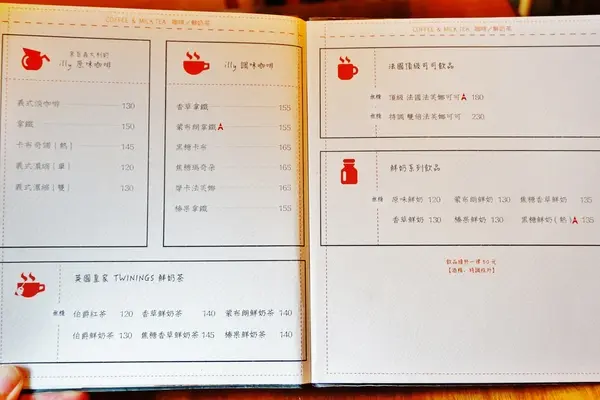 COFFEE & MILK TEA 咖啡／鮮奶茶
皇家義大利的
illy 原味咖啡
義式淡咖啡 130
拿鐵 150
卡布奇諾（熱） 145
義式濃縮（單） 120
義式濃縮（雙） 130
illy 調味咖啡
香草拿鐵 155
蒙布朗拿鐵 155
黑糖卡布 165
焦糖瑪奇朵 165
摩卡法芙娜 165
榛果拿鐵 155
英國皇家 TWININGS 鮮奶茶
無糖 伯爵紅茶 120 香草鮮奶茶 140 蒙布朗鮮奶茶 140
伯爵鮮奶茶 130 焦糖香草鮮奶茶 145 榛果鮮奶茶 140
COFFEE & MILK TEA 咖啡／鮮奶茶
法國頂級可可飲品
微糖 頂級 法國法芙娜可可 180
微糖 特調 雙倍法芙娜可可 230
鮮奶系列飲品
微糖 原味鮮奶 120 蒙布朗鮮奶 130 焦糖香草鮮奶 135
香草鮮奶 130 榛果鮮奶 130 黑糖鮮奶（熱） 135
飲品續杯一律50元
【微糖、特調除外】